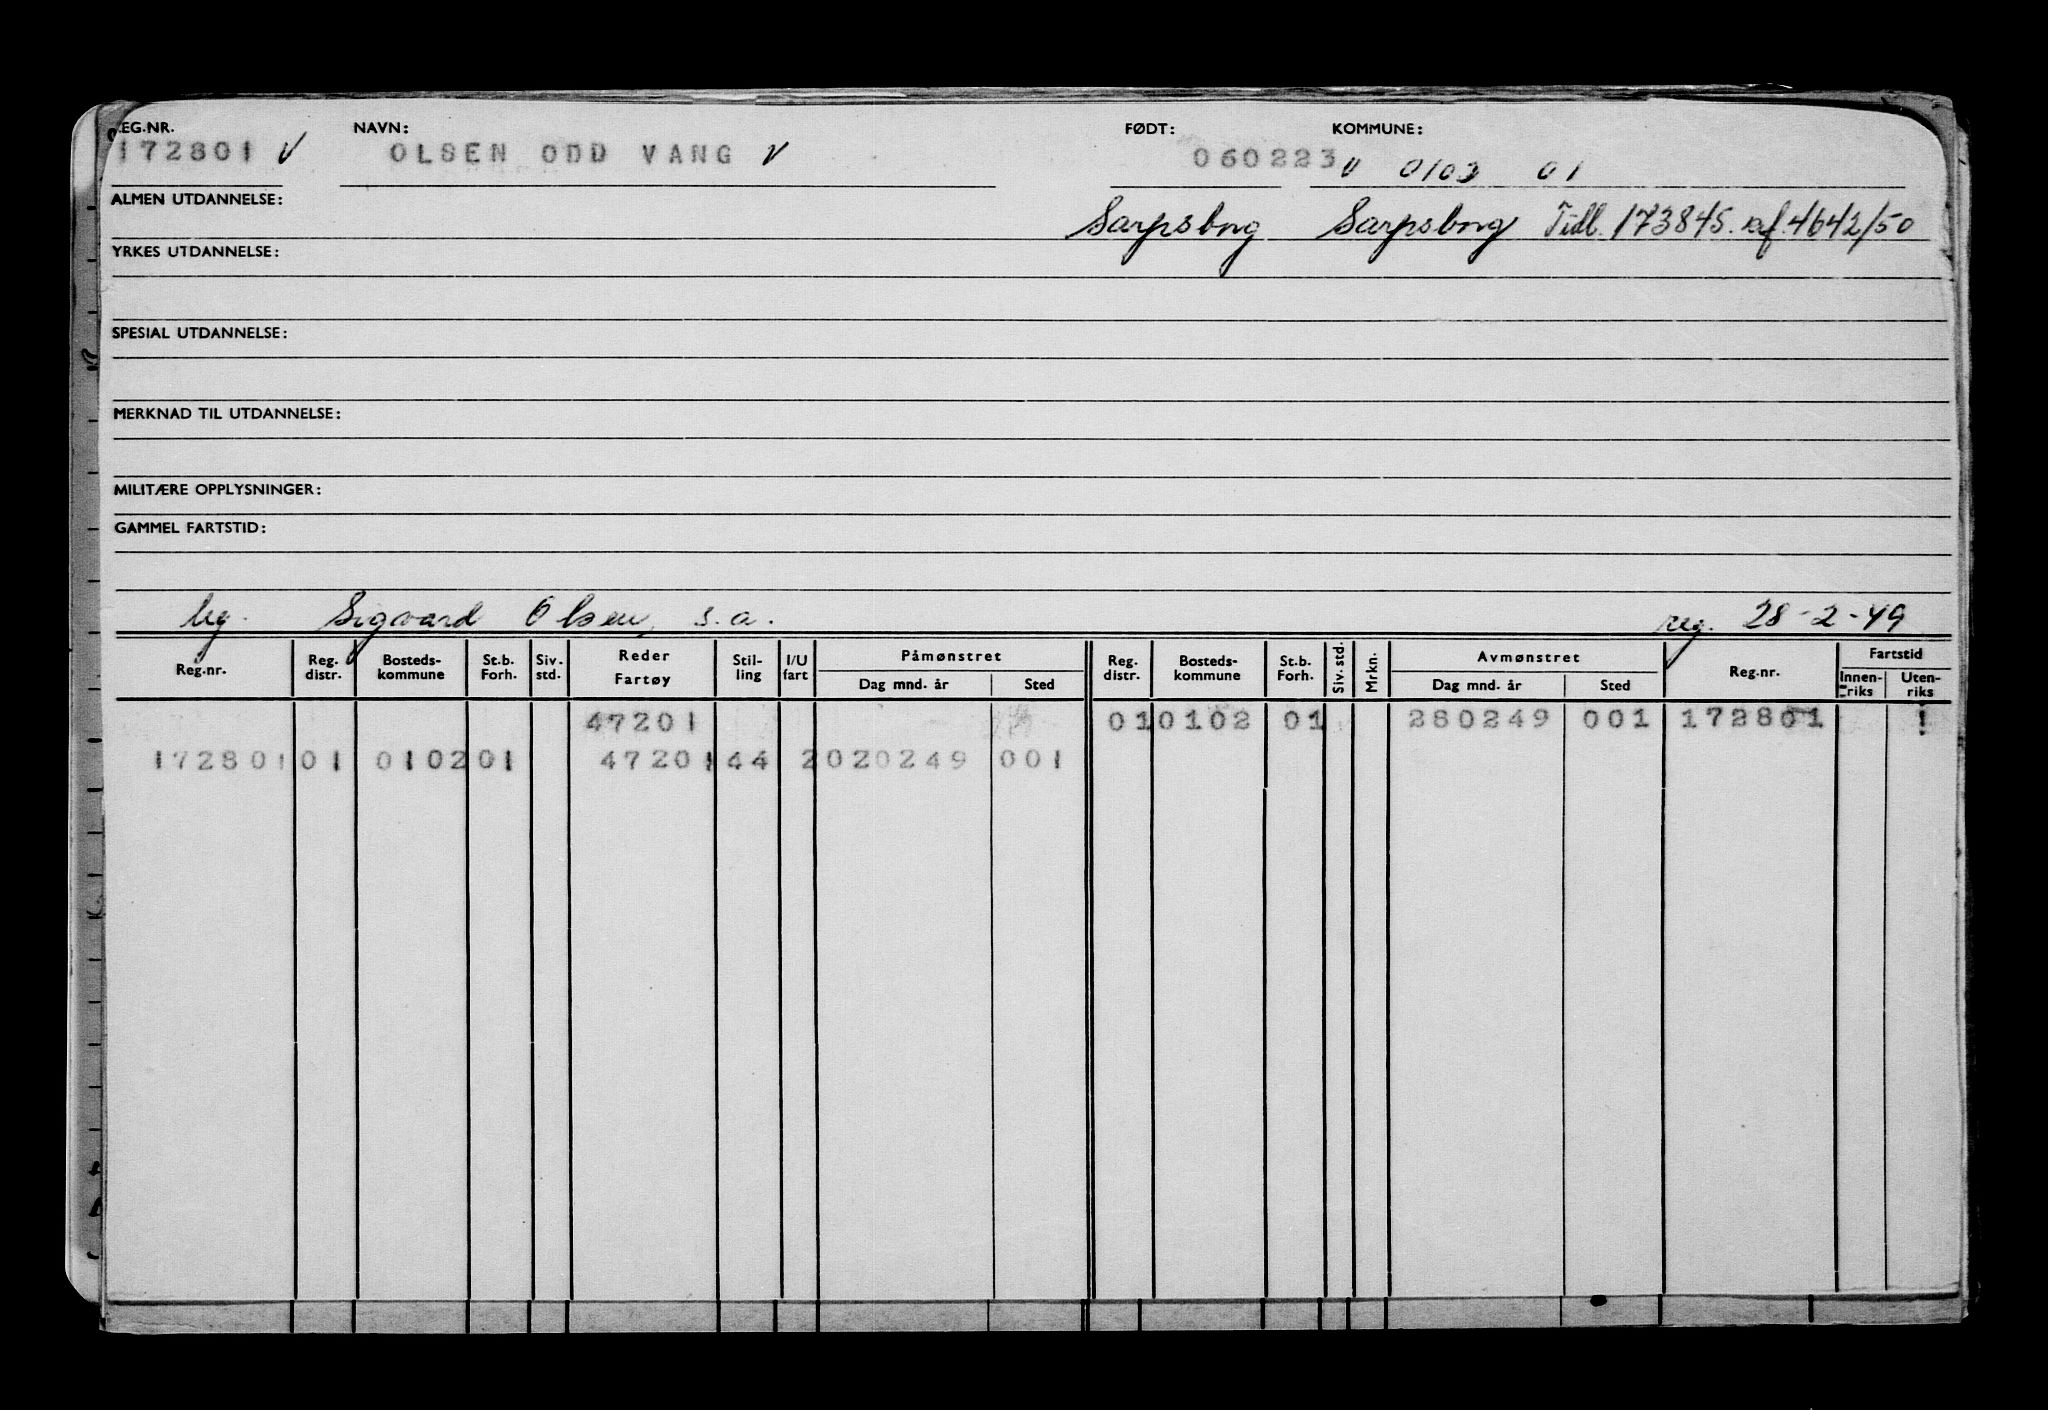 REG.NR. NAVN: FØDT: KOMMUNE:
172801 V OLSEN ODD VANG V 060223 V 0103 01
ALMEN UTDANNELSE: Sarpsborg Sarpsborg Tidl. 173845. af. 4642/50
YRKES UTDANNELSE:
SPESIAL UTDANNELSE:
MERKNAD TIL UTDANNELSE:
MILITÆRE OPPLYSNINGER:
GAMMEL FARTSTID:
Ug. Sigvard Olsen, s.a. reg. 28-2-49
Reg.nr. Reg. distr. Bosteds-kommune St.b. Forh. Siv. std. Reder Fartøy Stil-ling I/U fart Påmønstret Dag mnd. år Sted Reg. distr. Bosteds-kommune St.b. Forh. Siv. std. Mrkn. Avmønstret Dag mnd. år Sted Reg.nr. Fartstid Innen-riks Uten-riks
47201 01 0102 01 280249 001 172801 1
172801 01 0102 01 47201 44 2 020249 001